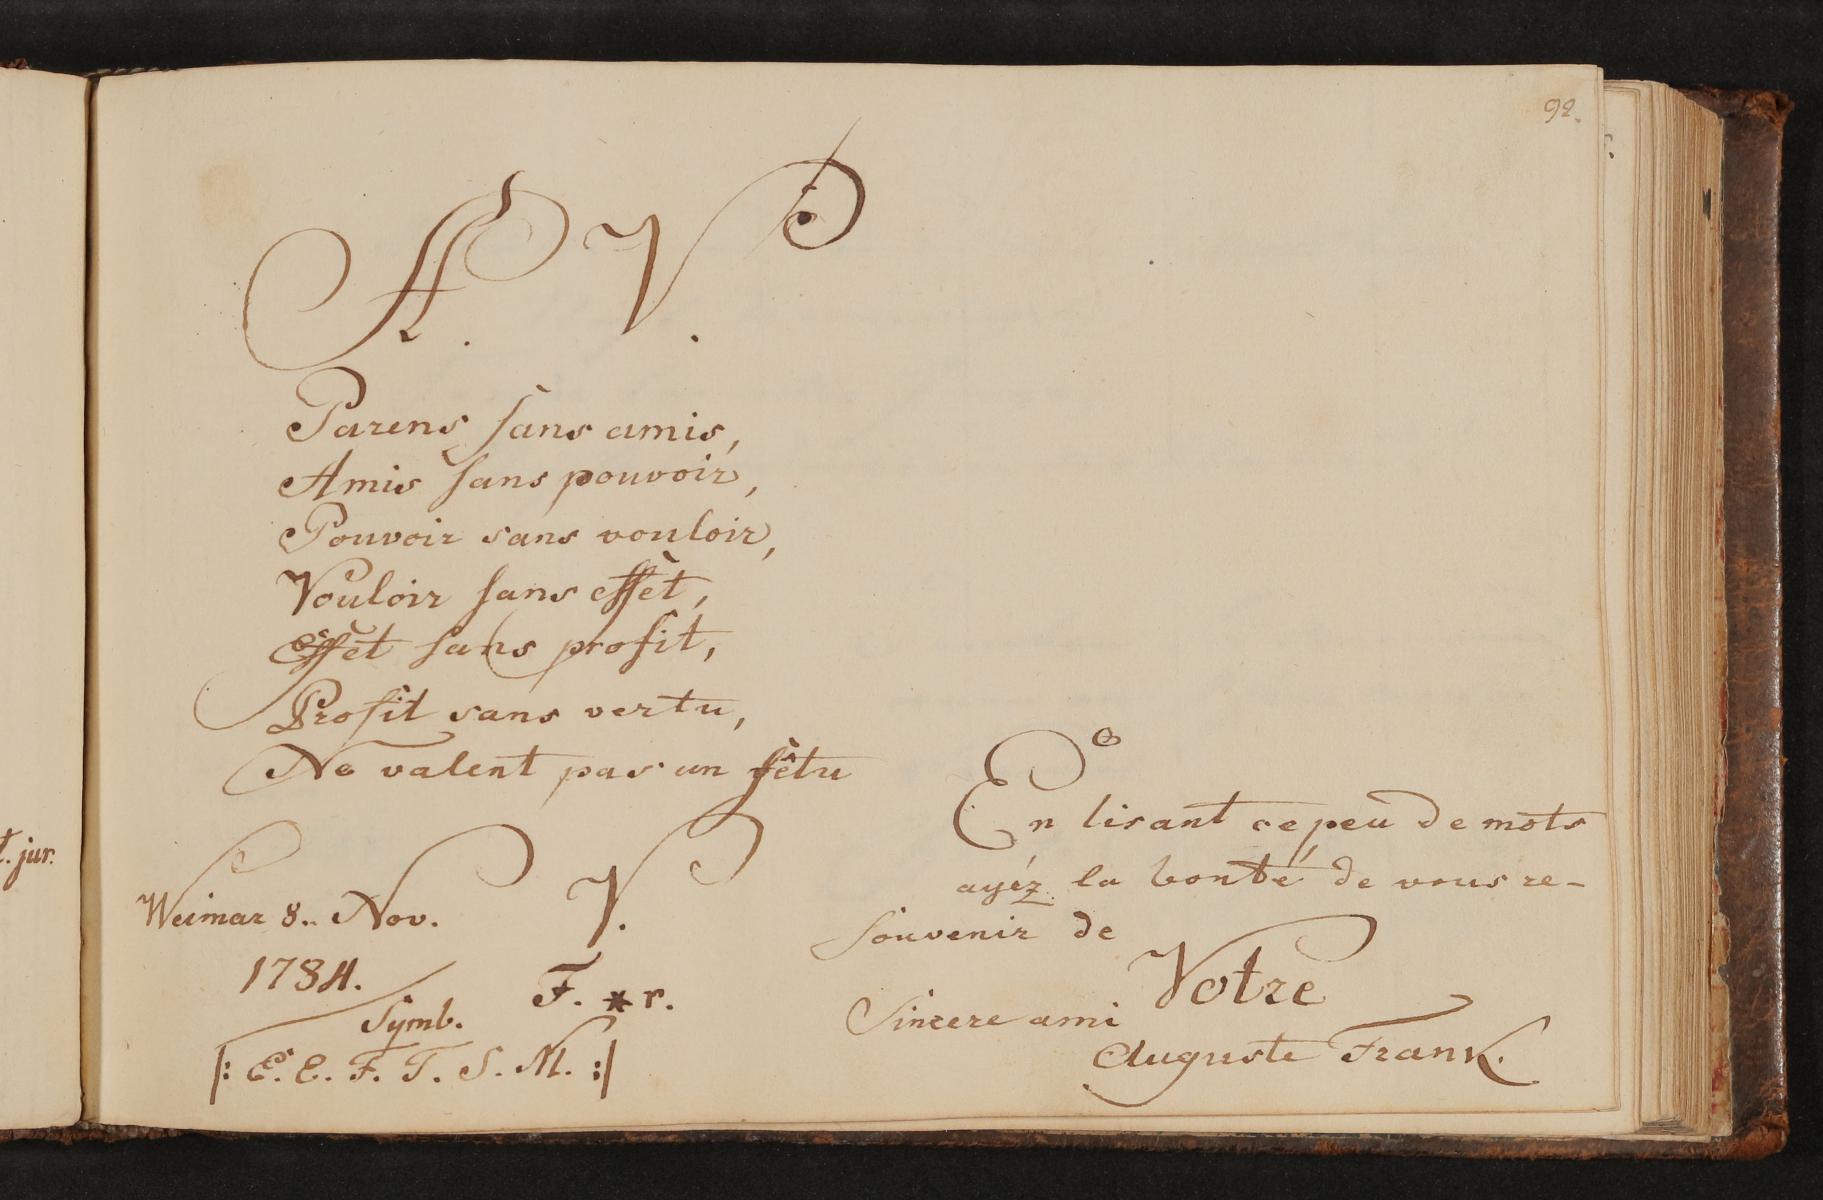 92.
A. V.
Parens sans amis,
Amis sans pouvoir,
Pouvoir sans vouloir,
Vouloir sans effèt,
Effèt sans profit,
Profit sans vertu,
Ne valent pas un fêtu
Weimar 8.. Nov.
1784.
V.
F. * r.
Symb.
|: E. E. F. T. S. M. :|
En lisant ce peu de mots
ayéz la bonté de vous re-
souvenir de
Votre
Sincere ami
Auguste Frank.
t. jur.